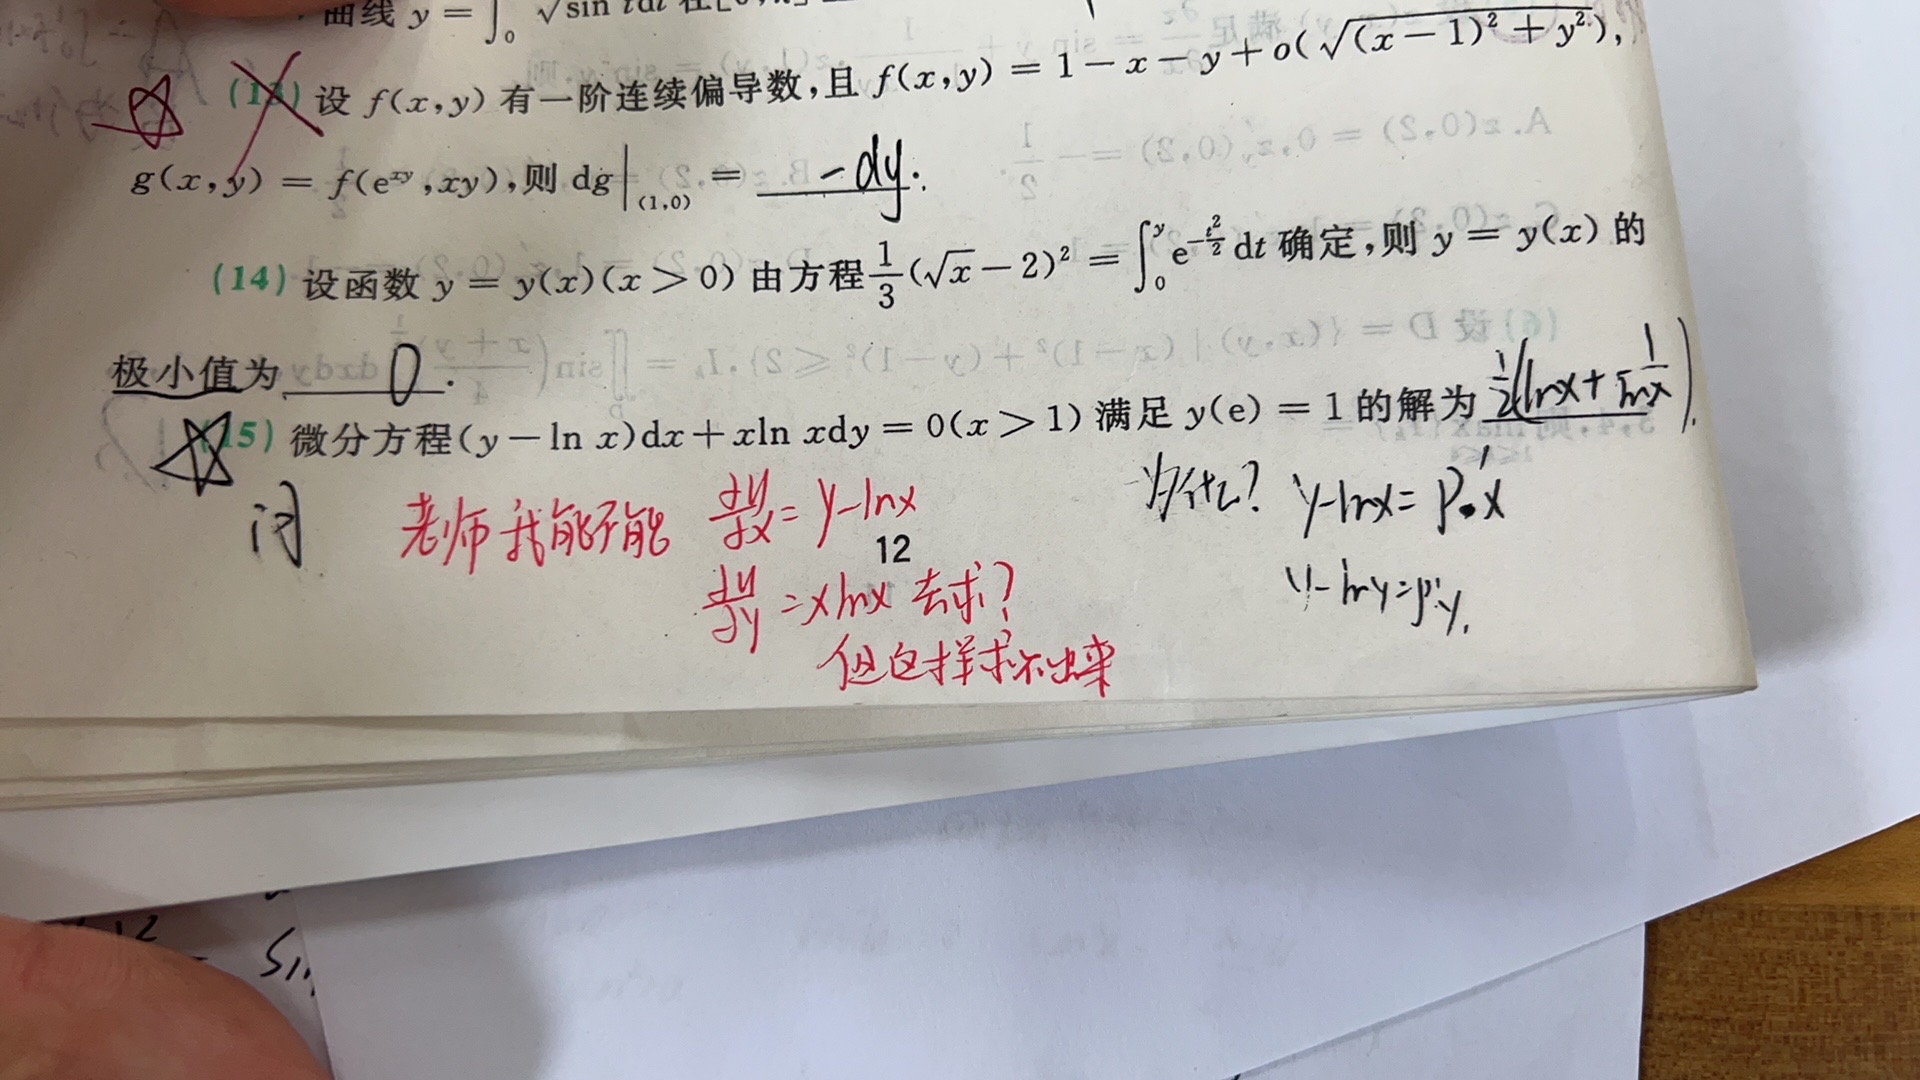 曲线 y = ∫₀ √sin t dt 在
(13) 设 f(x,y) 有一阶连续偏导数,且 f(x,y) = 1 − x − y + o(√((x−1)² + y²)),
g(x,y) = f(e^{xy}, xy),则 dg|_(1,0) = −dy.
(14) 设函数 y = y(x)(x > 0) 由方程 1/3(√x − 2)² = ∫₀^y e^{−t²/2} dt 确定,则 y = y(x) 的
极小值为 0 .
(15) 微分方程(y − ln x)dx + xln xdy = 0(x > 1) 满足 y(e) = 1 的解为 1/2(lnx + 1/lnx).
问 老师我能不能 ∂u/∂x = y−lnx 为什么? y−lnx = P'·x
12
∂u/∂y = xlnx 去求? y−lny = P'·y.
但这样求不出来